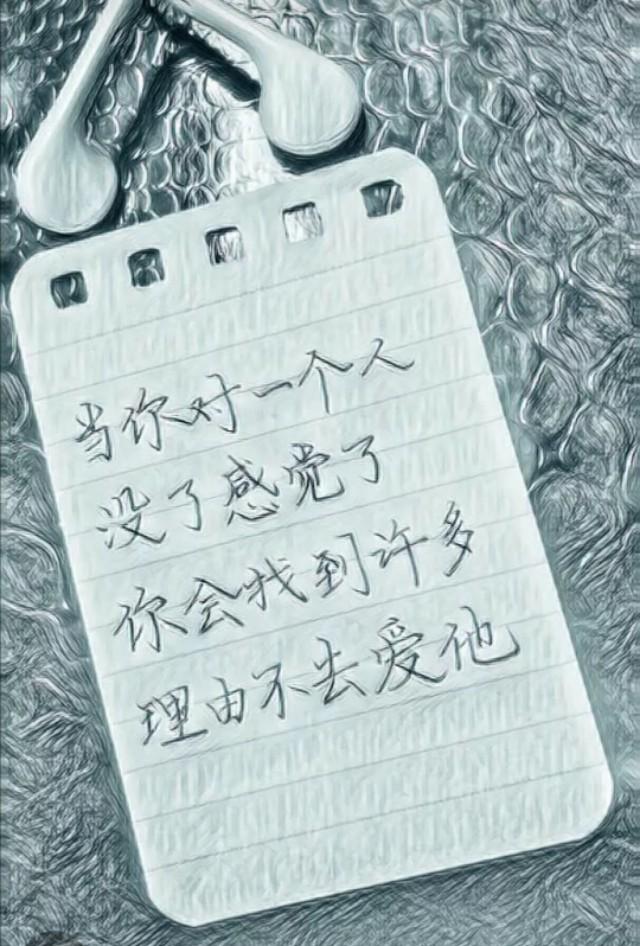 当你对一个人
没了感觉了
你会找到许多
理由不去爱他